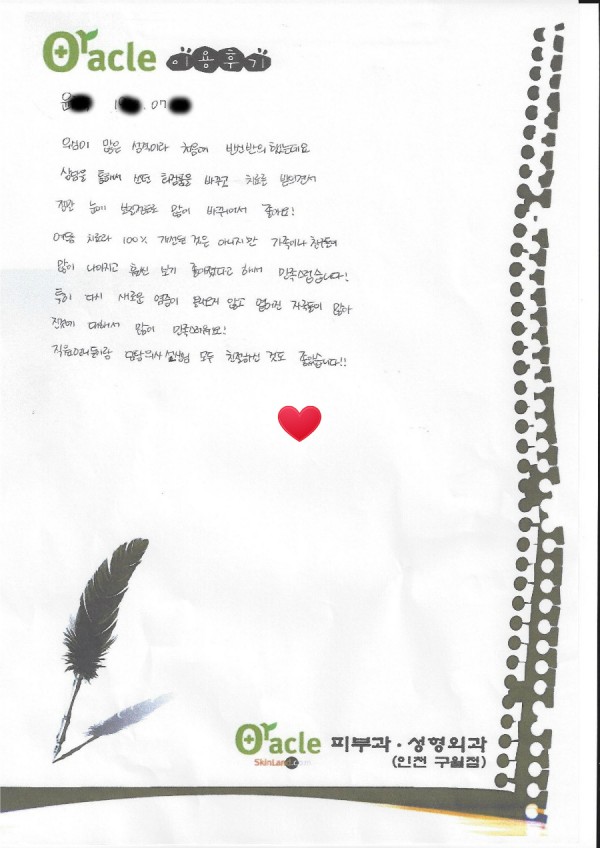 Oracle 이용후기
윤 1 . 07
의심이 많은 성격이라 처음에 반신반의 했는데요
상담을 통해서 쓰던 화장품을 바꾸고 치료를 받으면서
진짜 눈에 보일정도로 많이 바뀌어서 좋아요!
여드름 치료라 100% 개선된 것은 아니지만 가족이나 친구들이
많이 나아지고 훨씬 보기 좋아졌다고 하셔서 만족스럽습니다!
특히 다시 새로운 염증이 올라오지 않고 옅어진 자국들이 많아
진것에 대해서 많이 만족스러워요!
직원언니들이랑 담당의사 선생님 모두 친절하신 것도 좋았습니다!!
Oracle 피부과·성형외과
SkinLand.com (인천 구월점)